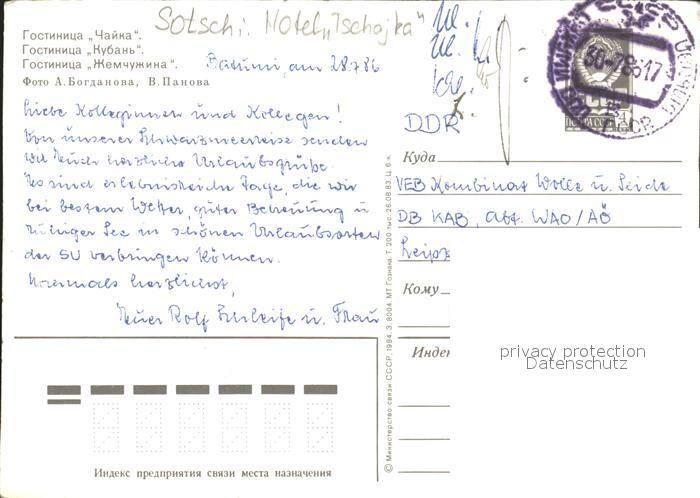 Sotschi: Hotel „Tschajka“
Гостиница „Чайка“.
Гостиница „Кубань“.
Гостиница „Жемчужина“.
Фото А. Богданова, В. Панова
Batumi, am 28.7.86
Liebe Kolleginnen und Kollegen!
Von unserer Schwarzmeerreise senden
wir Euch herzliche Urlaubsgrüße.
Es sind erlebnisreiche Tage, die wir
bei bestem Wetter, guter Betreuung u
ruhiger See in schönen Urlaubsorten
der SU verbringen können.
Nochmals herzlichst,
Euer Rolf u. Frau
DDR
Куда
VEB Kombinat Wolle u. Seide
DB KAB, Abt. WAO/AÖ
Leipz
Кому
Индек
privacy protection
Datenschutz
30-7-86 17
ПОЧТА СССР
© Министерство связи СССР, 1984. З. 8004. МТ Гознака. Т. 200 тыс. 26.08.83. Ц. 6 к.
Индекс предприятия связи места назначения